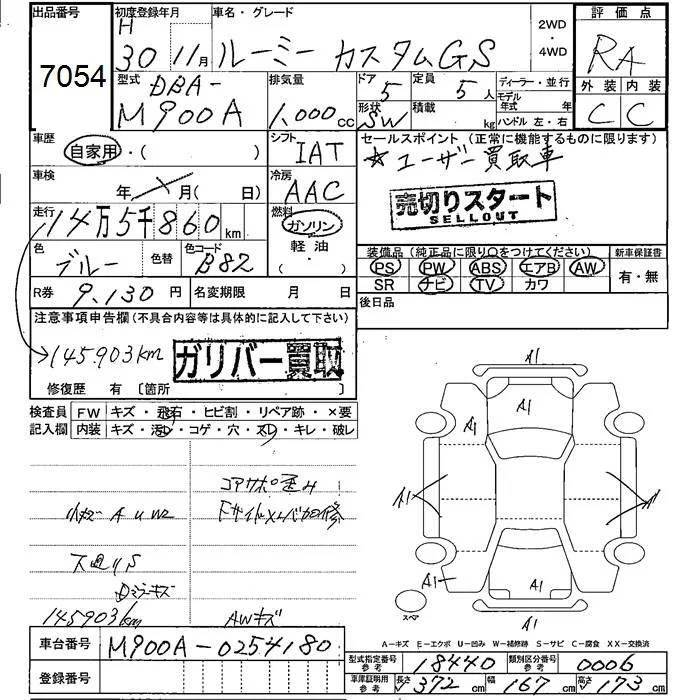 出品番号 7054
初度登録年月 H 30 11月
車名・グレード ルーミー カスタムGS
2WD・4WD
評価点 RA
外装 内装
C C
型式 DBA-M900A
排気量 1,000cc
ドア 5 形状 SW
定員 5人 積載 kg
ディーラー・並行
モデル年式 年
ハンドル 左・右
車歴 自家用・( )
シフト IAT
セールスポイント(正常に機能するものに限ります)
☆ユーザー買取車
車検 年 月( 日)
冷房 AAC
売切りスタート
SELLOUT
走行 14万5千860km
燃料 ガソリン
軽油
( ・ )
色 ブルー 色替 色コード B82
装備品(純正品に限り○をつけてください) 新車保証書
PS PW ABS エアB AW 有・無
SR ナビ TV カワ
R券 9,130円 名変期限 月 日
後日品
注意事項申告欄(不具合内容等は具体的に記入して下さい)
145,903km ガリバー買取
修復歴 有 〔箇所 〕
検査員記入欄 FW キズ・飛石・ヒビ割・リペア跡・×要
内装 キズ・汚レ・コゲ・穴・スレ・キレ・破レ
コアサポ歪み
小キズ A U W2
スペア
145903km AWキズ
A1
A1
A1
A1 A1
A1 A1
A1
A-キズ E-エクボ U-凹み W-補修跡 S-サビ C-腐食 XX-交換済
車台番号 M900A-0254180
登録番号
型式指定番号参考 18440 類別区分番号参考 0006
車庫証明用参考 長さ 372cm 幅 167cm 高さ 173cm